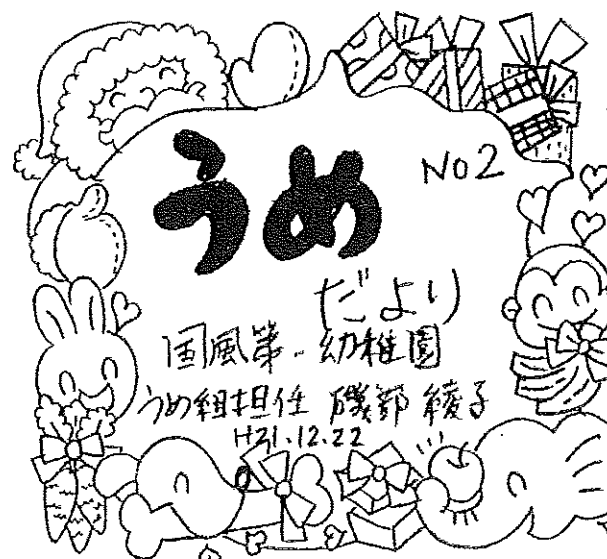 うめ
No2
だより
国風第一幼稚園
うめ組担任 磯部 綾子
H21.12.22